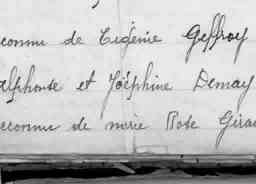 econnu de Eugénie Geffroy
alphonse et Joséphine Demay
econnu de marie Rose Girau